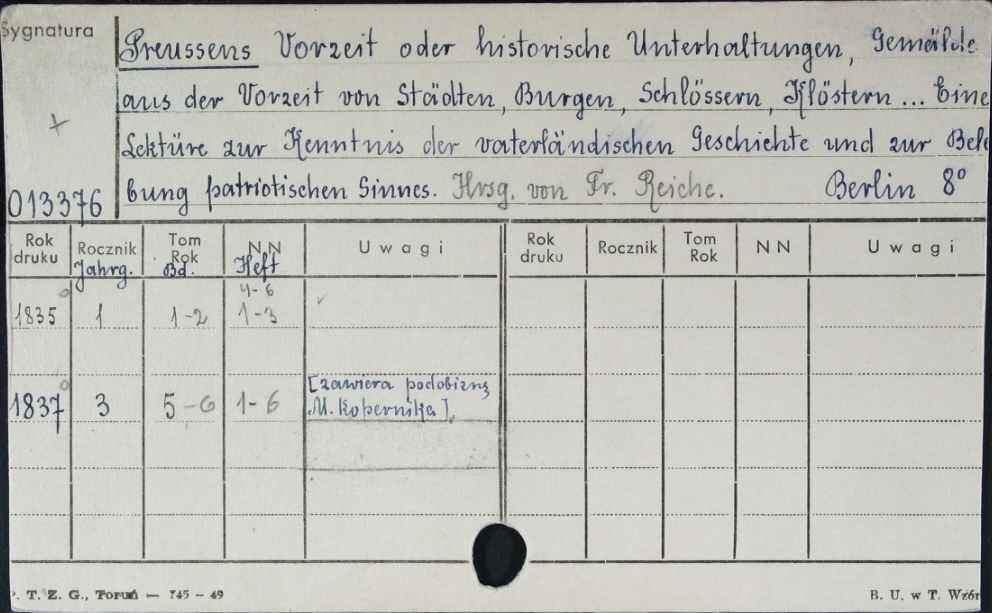 Sygnatura
Preussens Vorzeit oder historische Unterhaltungen, Gemälde
aus der Vorzeit von Städten, Burgen, Schlössern, Klöstern... Eine
Lektüre zur Kenntnis der vaterländischen Geschichte und zur Bele
bung patriotischen Sinnes. Hrsg. von Fr. Reiche. Berlin 8º
013376
Rok druku Rocznik Tom Rok NN Uwagi Rok druku Rocznik Tom Rok NN Uwagi
Jahrg. Bd. Heft
4-6
1835 1 1-2 1-3
1837 3 5-6 1-6 [zawiera podobiznę
M. Kopernika].
P. T. Z. G., Toruń — 745 — 49 B. U. w T. Wzór